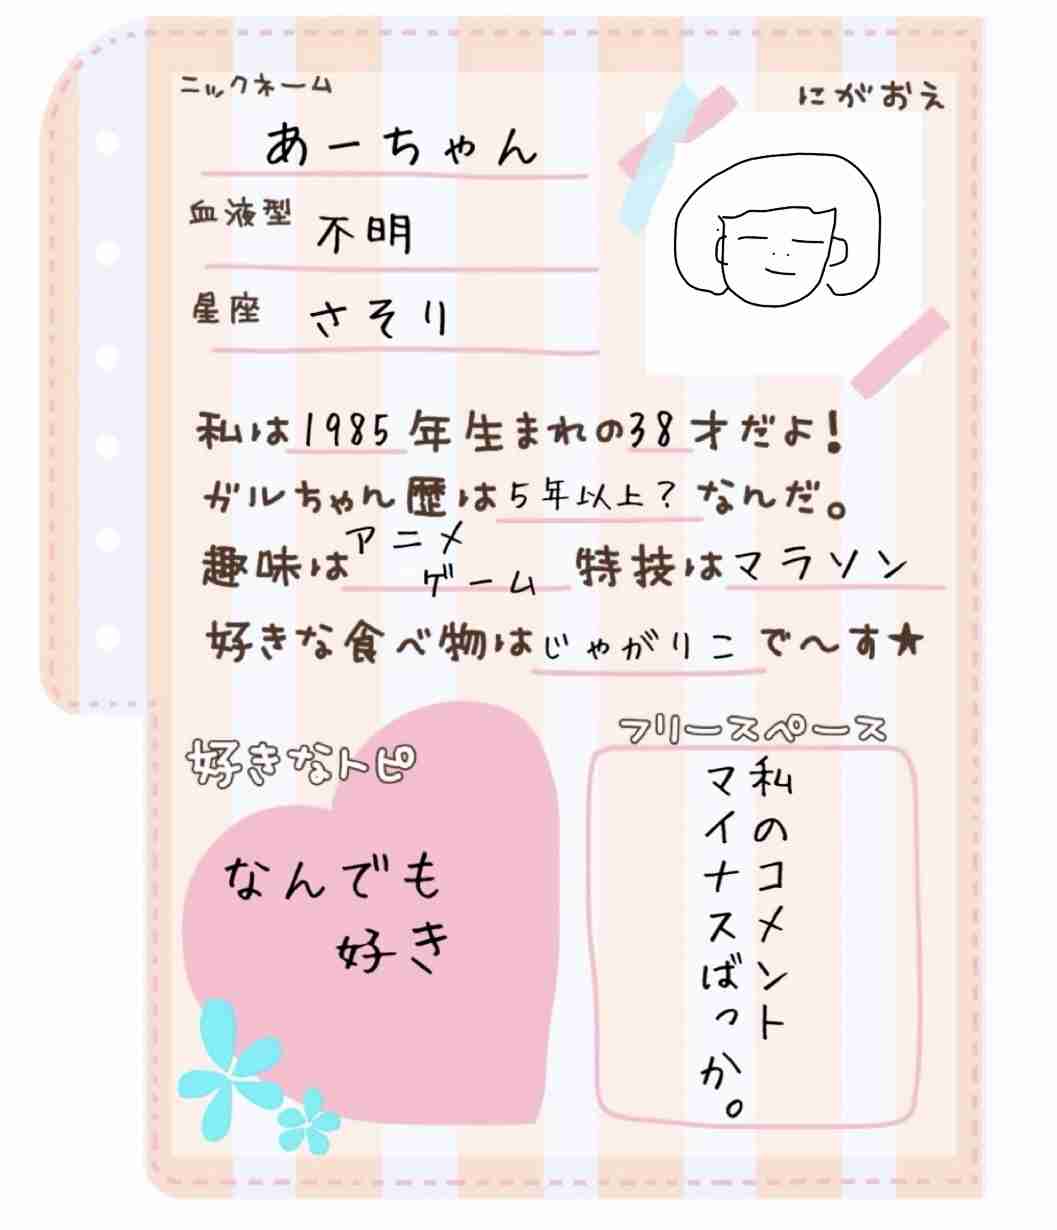 ニックネーム
あーちゃん
にがおえ
血液型 不明
星座 さそり
私は1985年生まれの38才だよ!
ガルちゃん歴は5年以上?なんだ。
趣味はアニメ
ゲーム 特技はマラソン
好きな食べ物はじゃがりこで〜す★
好きなトピ
なんでも
好き
フリースペース
私のコメント
マイナスばっか。